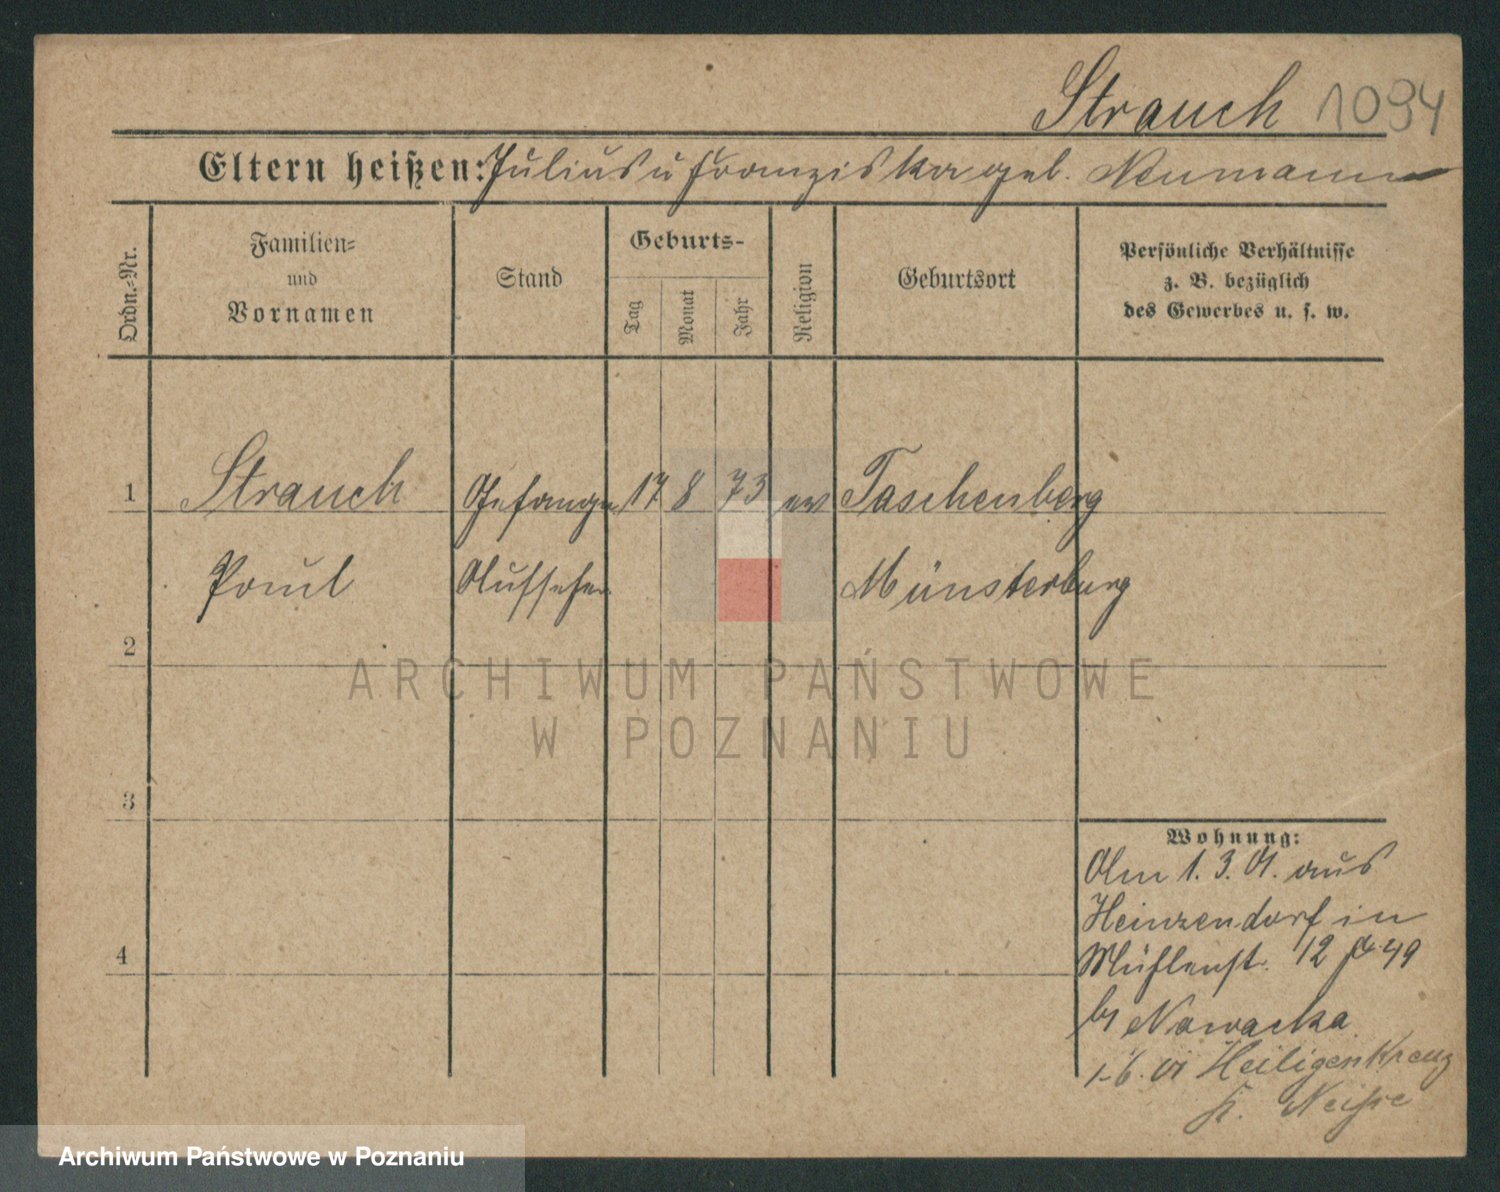 Strauch 1094
Eltern heißen: Julius u Franziska geb. Neumann
Ordn.-Nr.
Familien-
und
Vornamen
Stand
Geburts-
Tag
Monat
Jahr
Religion
Geburtsort
Persönliche Verhältnisse
z. B. bezüglich
des Gewerbes u. s. w.
1 Strauch Gefangn 17 8 73 ev Taschenberg
Paul Aufseher Münsterberg
2
ARCHIWUM PAŃSTWOWE
W POZNANIU
3
Wohnung:
Am 1. 3. 01. aus
Heinzendorf in
Mühlenst. 12
4
bei Nowacka
1-6. 01 Heiligenkreuz
K. Neisse
Archiwum Państwowe w Poznaniu